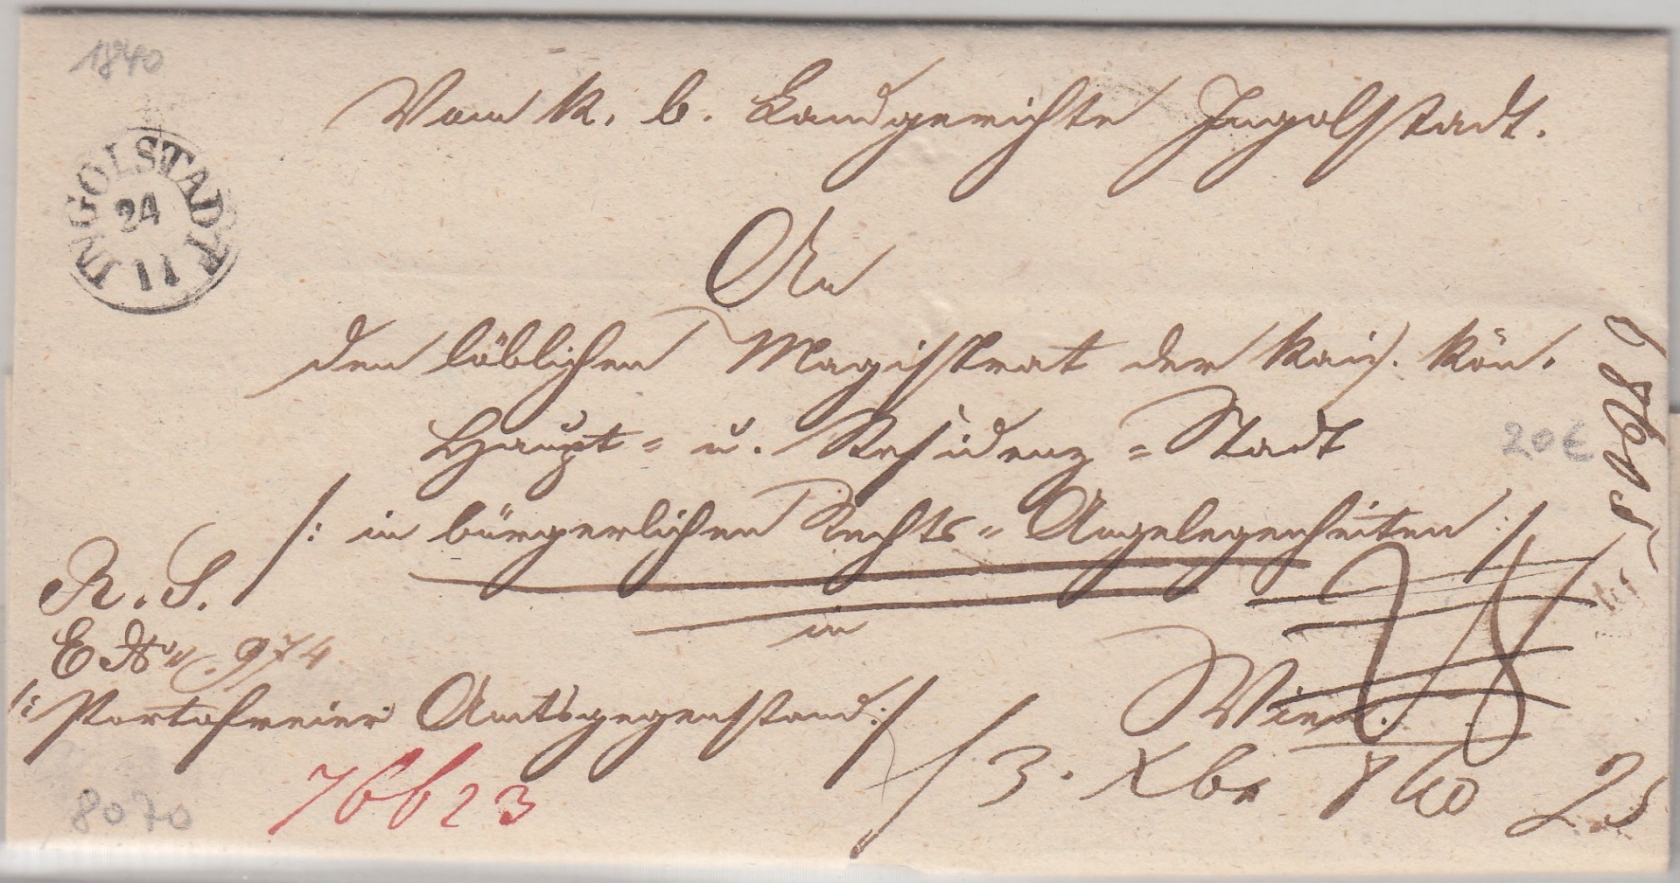 1840
Vom K. b. Landgerichte Ingolstadt.
INGOLSTADT
24
11
An
den löblichen Magistrat der Kais. Kön.
Haupt= u. Residenz=Stadt
20€
/: in bürgerlichen Rechts=Angelegenheiten :/
R. S.
in
E. Nr. 974
Wien.
/: Portofreier Amtsgegenstand :/
3. Xbr 840
76623
25
8070